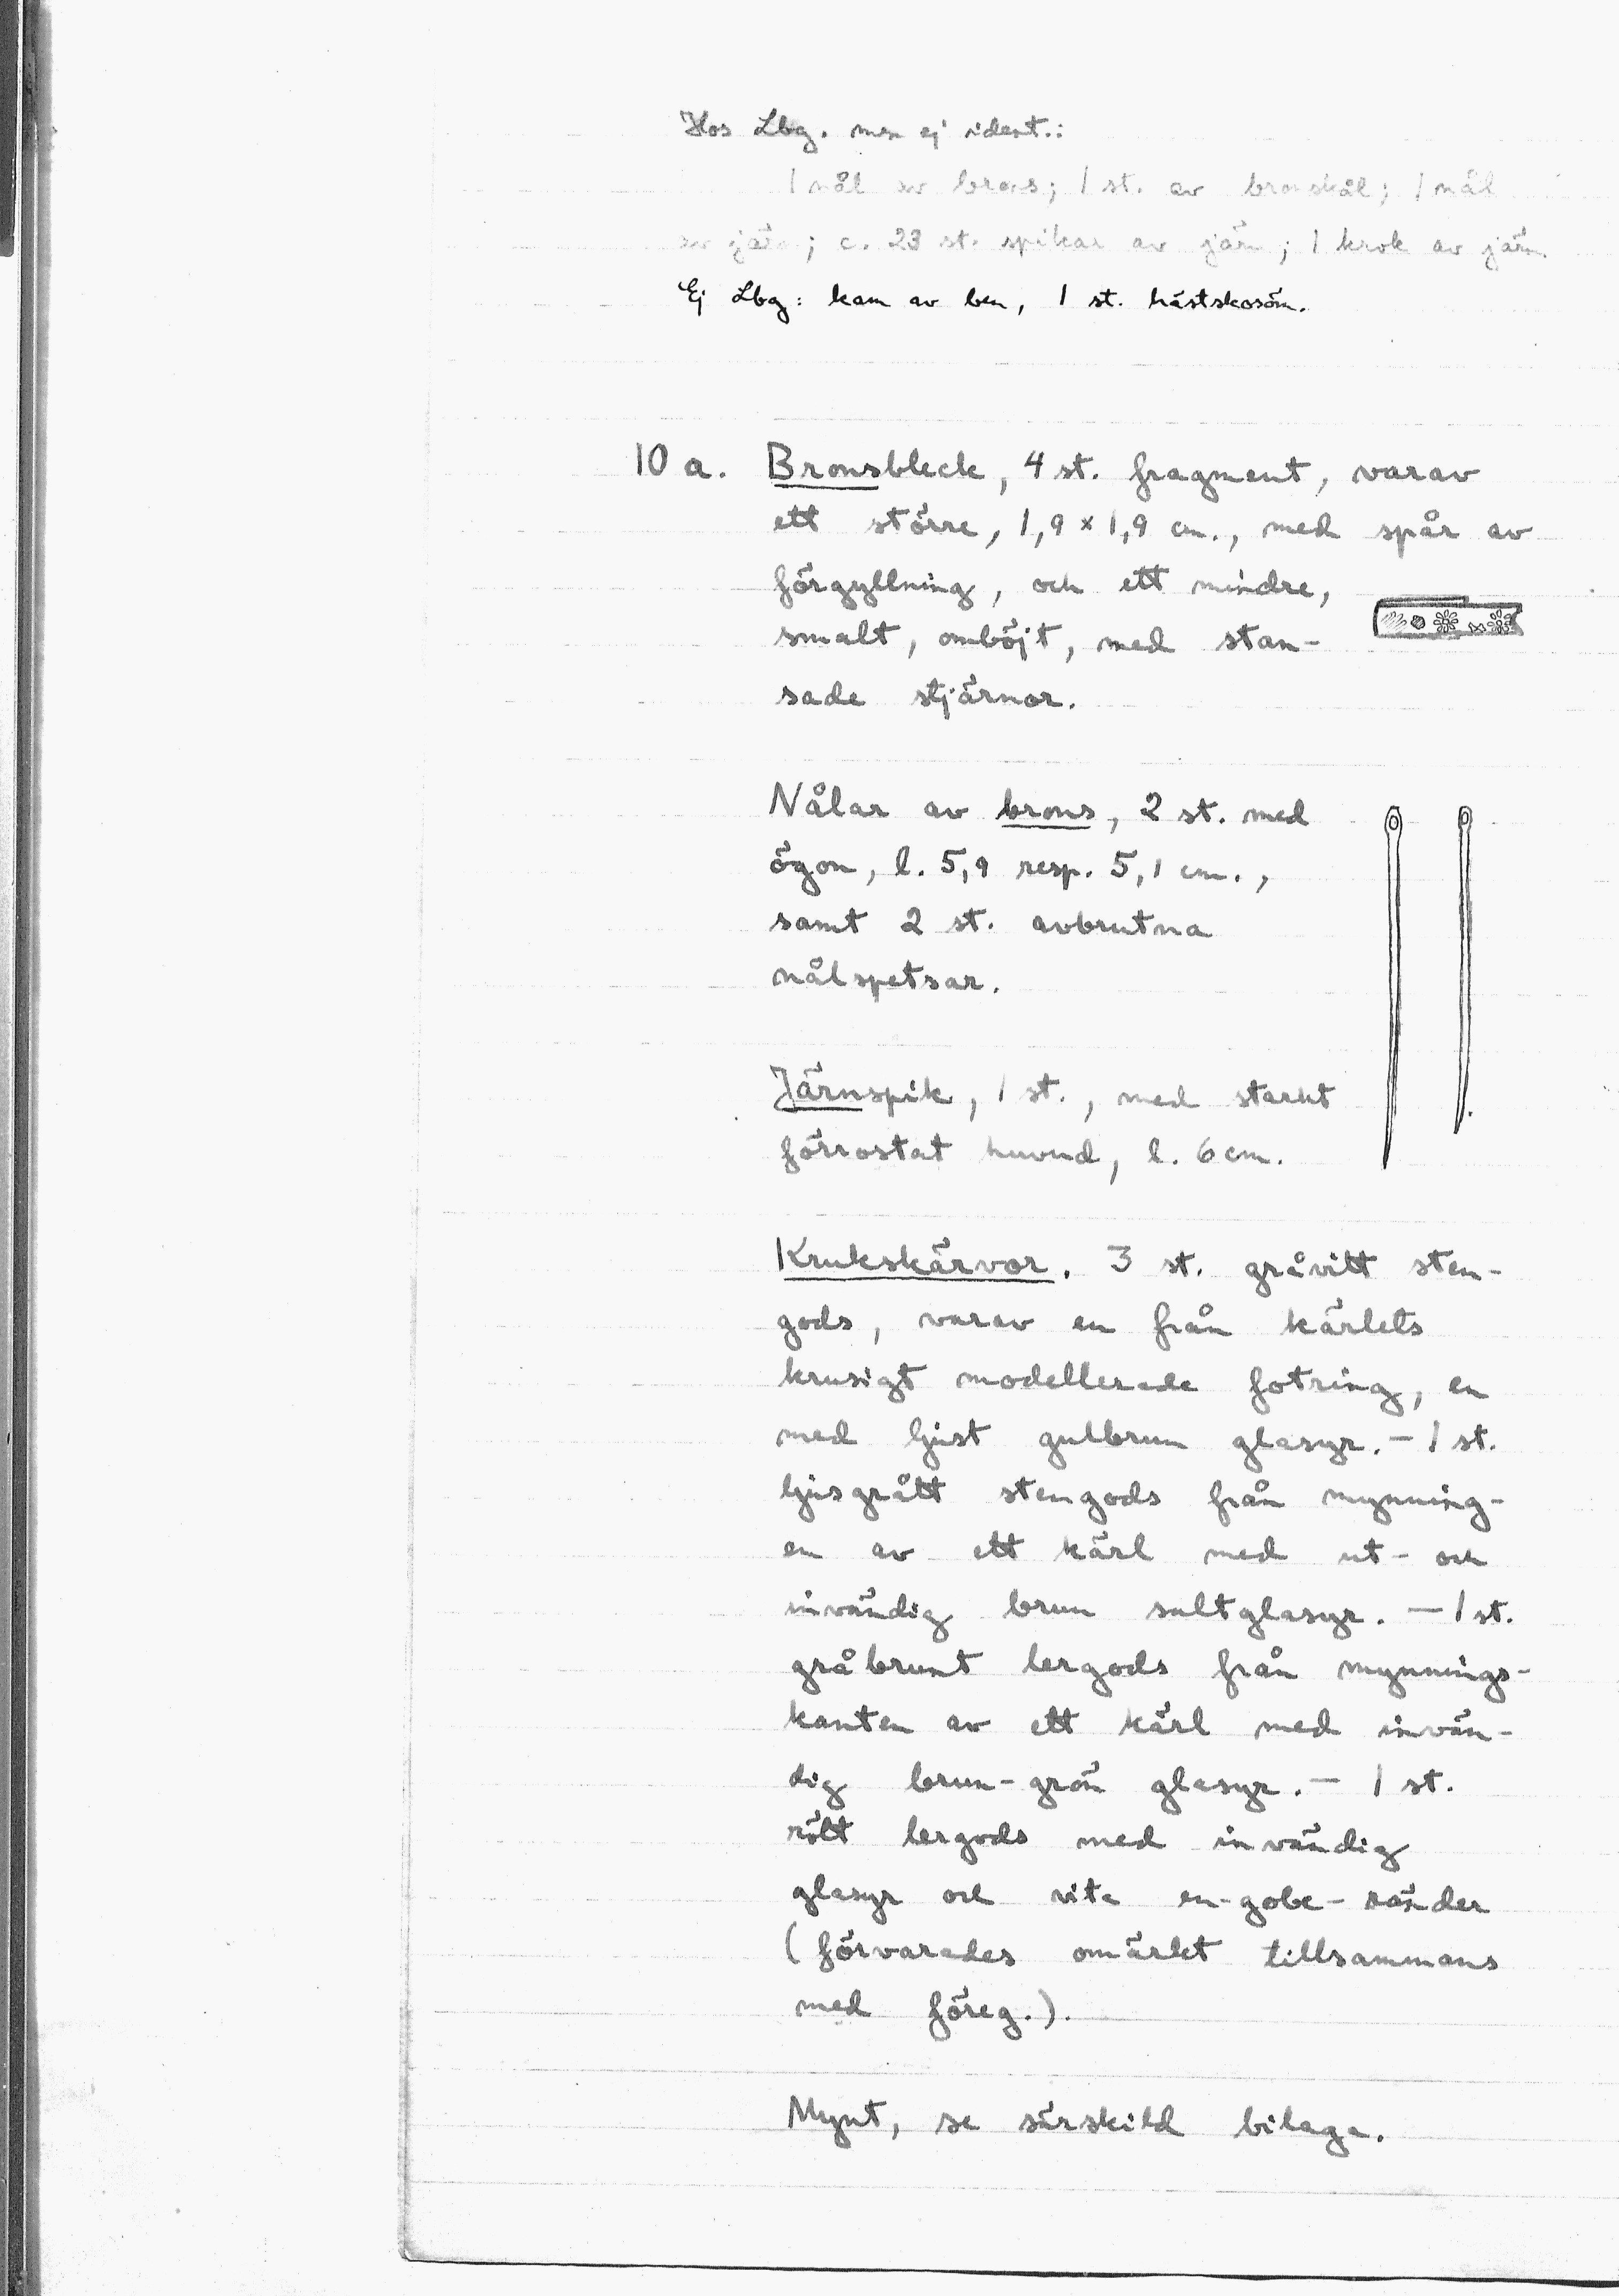 Hos Lbg. men ej ident.:
1 nål av brons; 1 st. av bronskål; 1 nål
av järn; c. 23 st. spikar av järn; 1 krok av järn.
Ej Lbg: kam av ben, 1 st. hästskosöm.
10 a. Bronsbleck, 4 st. fragment, varav
ett större, 1,9 x 1,9 cm., med spår av
förgyllning, och ett mindre,
smalt, omböjt, med stan-
sade stjärnor.
Nålar av brons, 2 st. med
ögon, l. 5,9 resp. 5,1 cm.,
samt 2 st. avbrutna
nålspetsar.
Järnspik, 1 st., med starkt
förrostat huvud, l. 6 cm.
Krukskärvor. 3 st. gråvitt sten-
gods, varav en från kärlets
krusigt modellerade fotring, en
med ljust gulbrun glasyr. - 1 st.
ljusgrått stengods från mynning-
en av ett kärl med ut- och
invändig brun saltglasyr. - 1 st.
gråbrunt lergods från mynnings-
kanten av ett kärl med invän-
dig brun-grön glasyr. - 1 st.
rött lergods med invändig
glasyr och vita en-gobe-ränder
(förvarades omärkt tillsammans
med föreg.).
Mynt, se särskild bilaga.